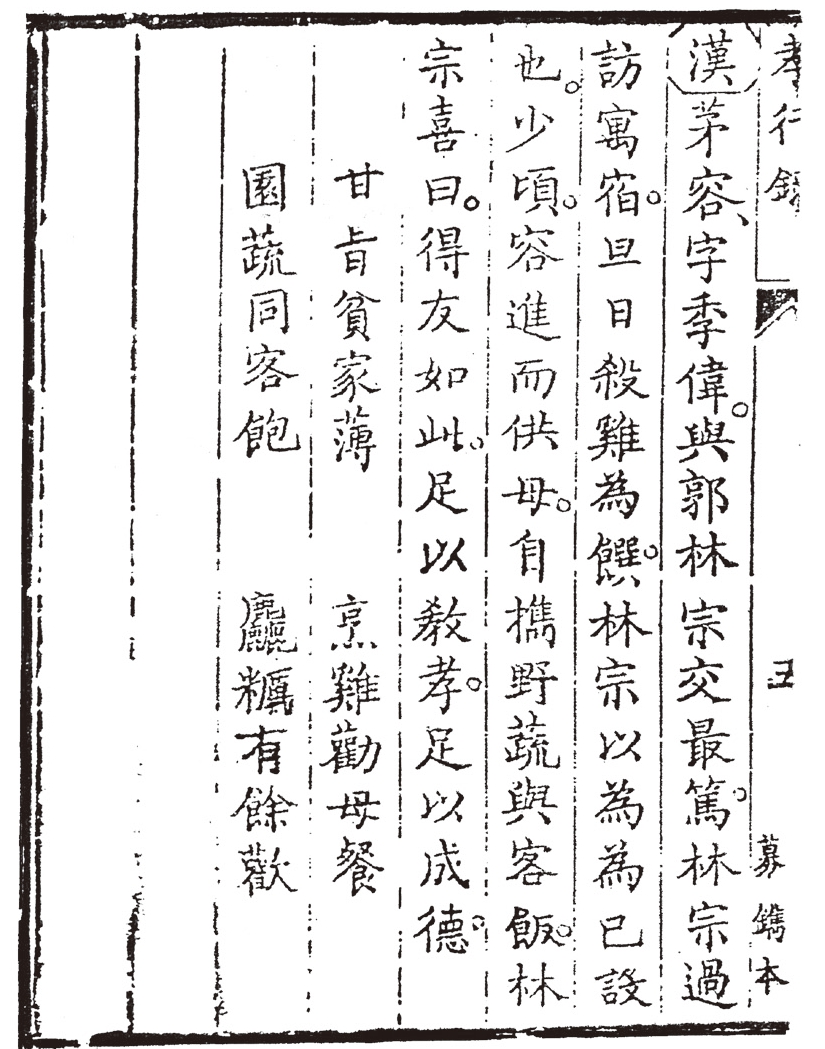 孝行錄 募鐫本
漢茅容、字季偉。與郭林宗交最篤。林宗過
訪寓宿。旦日殺雞為饌。林宗以為為已設
也。少頃。容進而供母。自擕野蔬與客飯。林
宗喜曰。得友如此。足以教孝。足以成德。
甘旨貧家薄 烹雞勸母餐
園蔬同客飽 麤糲有餘歡